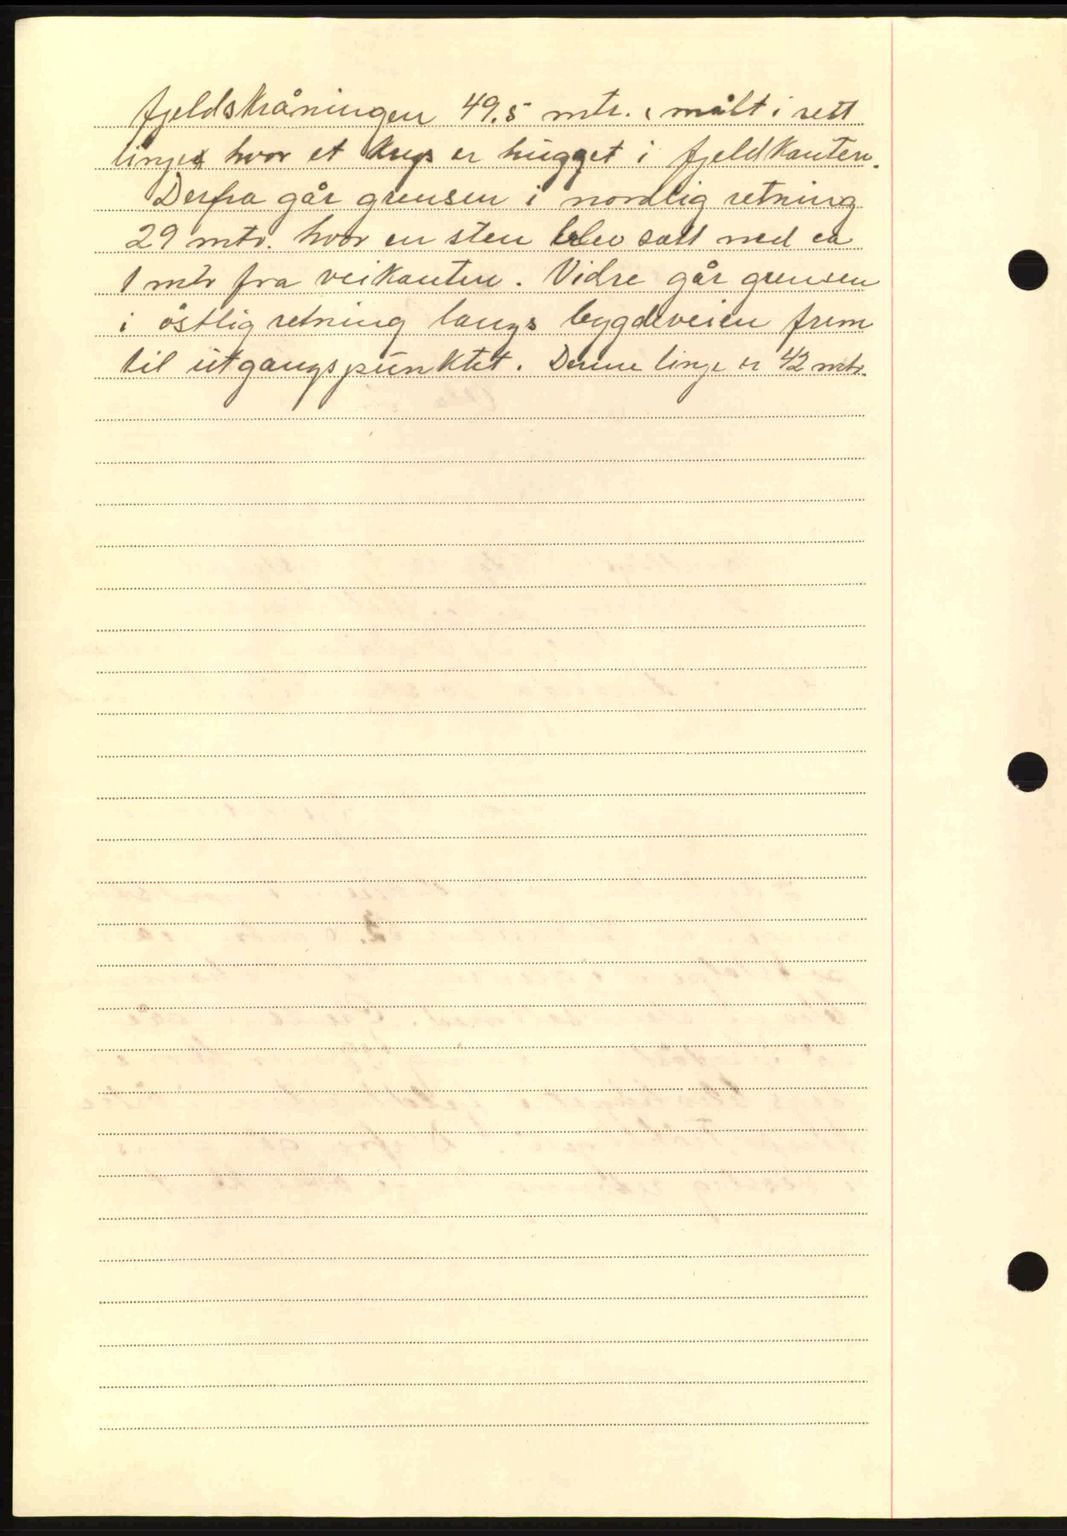 fjeldskråningen 49.5 mtr. målt i rett
linje hvor et krys er hugget i fjeldkanten.
Derfra går grensen i nordlig retning
29 mtr. hvor en sten blev satt ned ca
1 mtr fra veikanten. Vidre går grensen
i östlig retning langs bygdeveien frem
til utgangspunktet. Denne linje er 42 mtr.